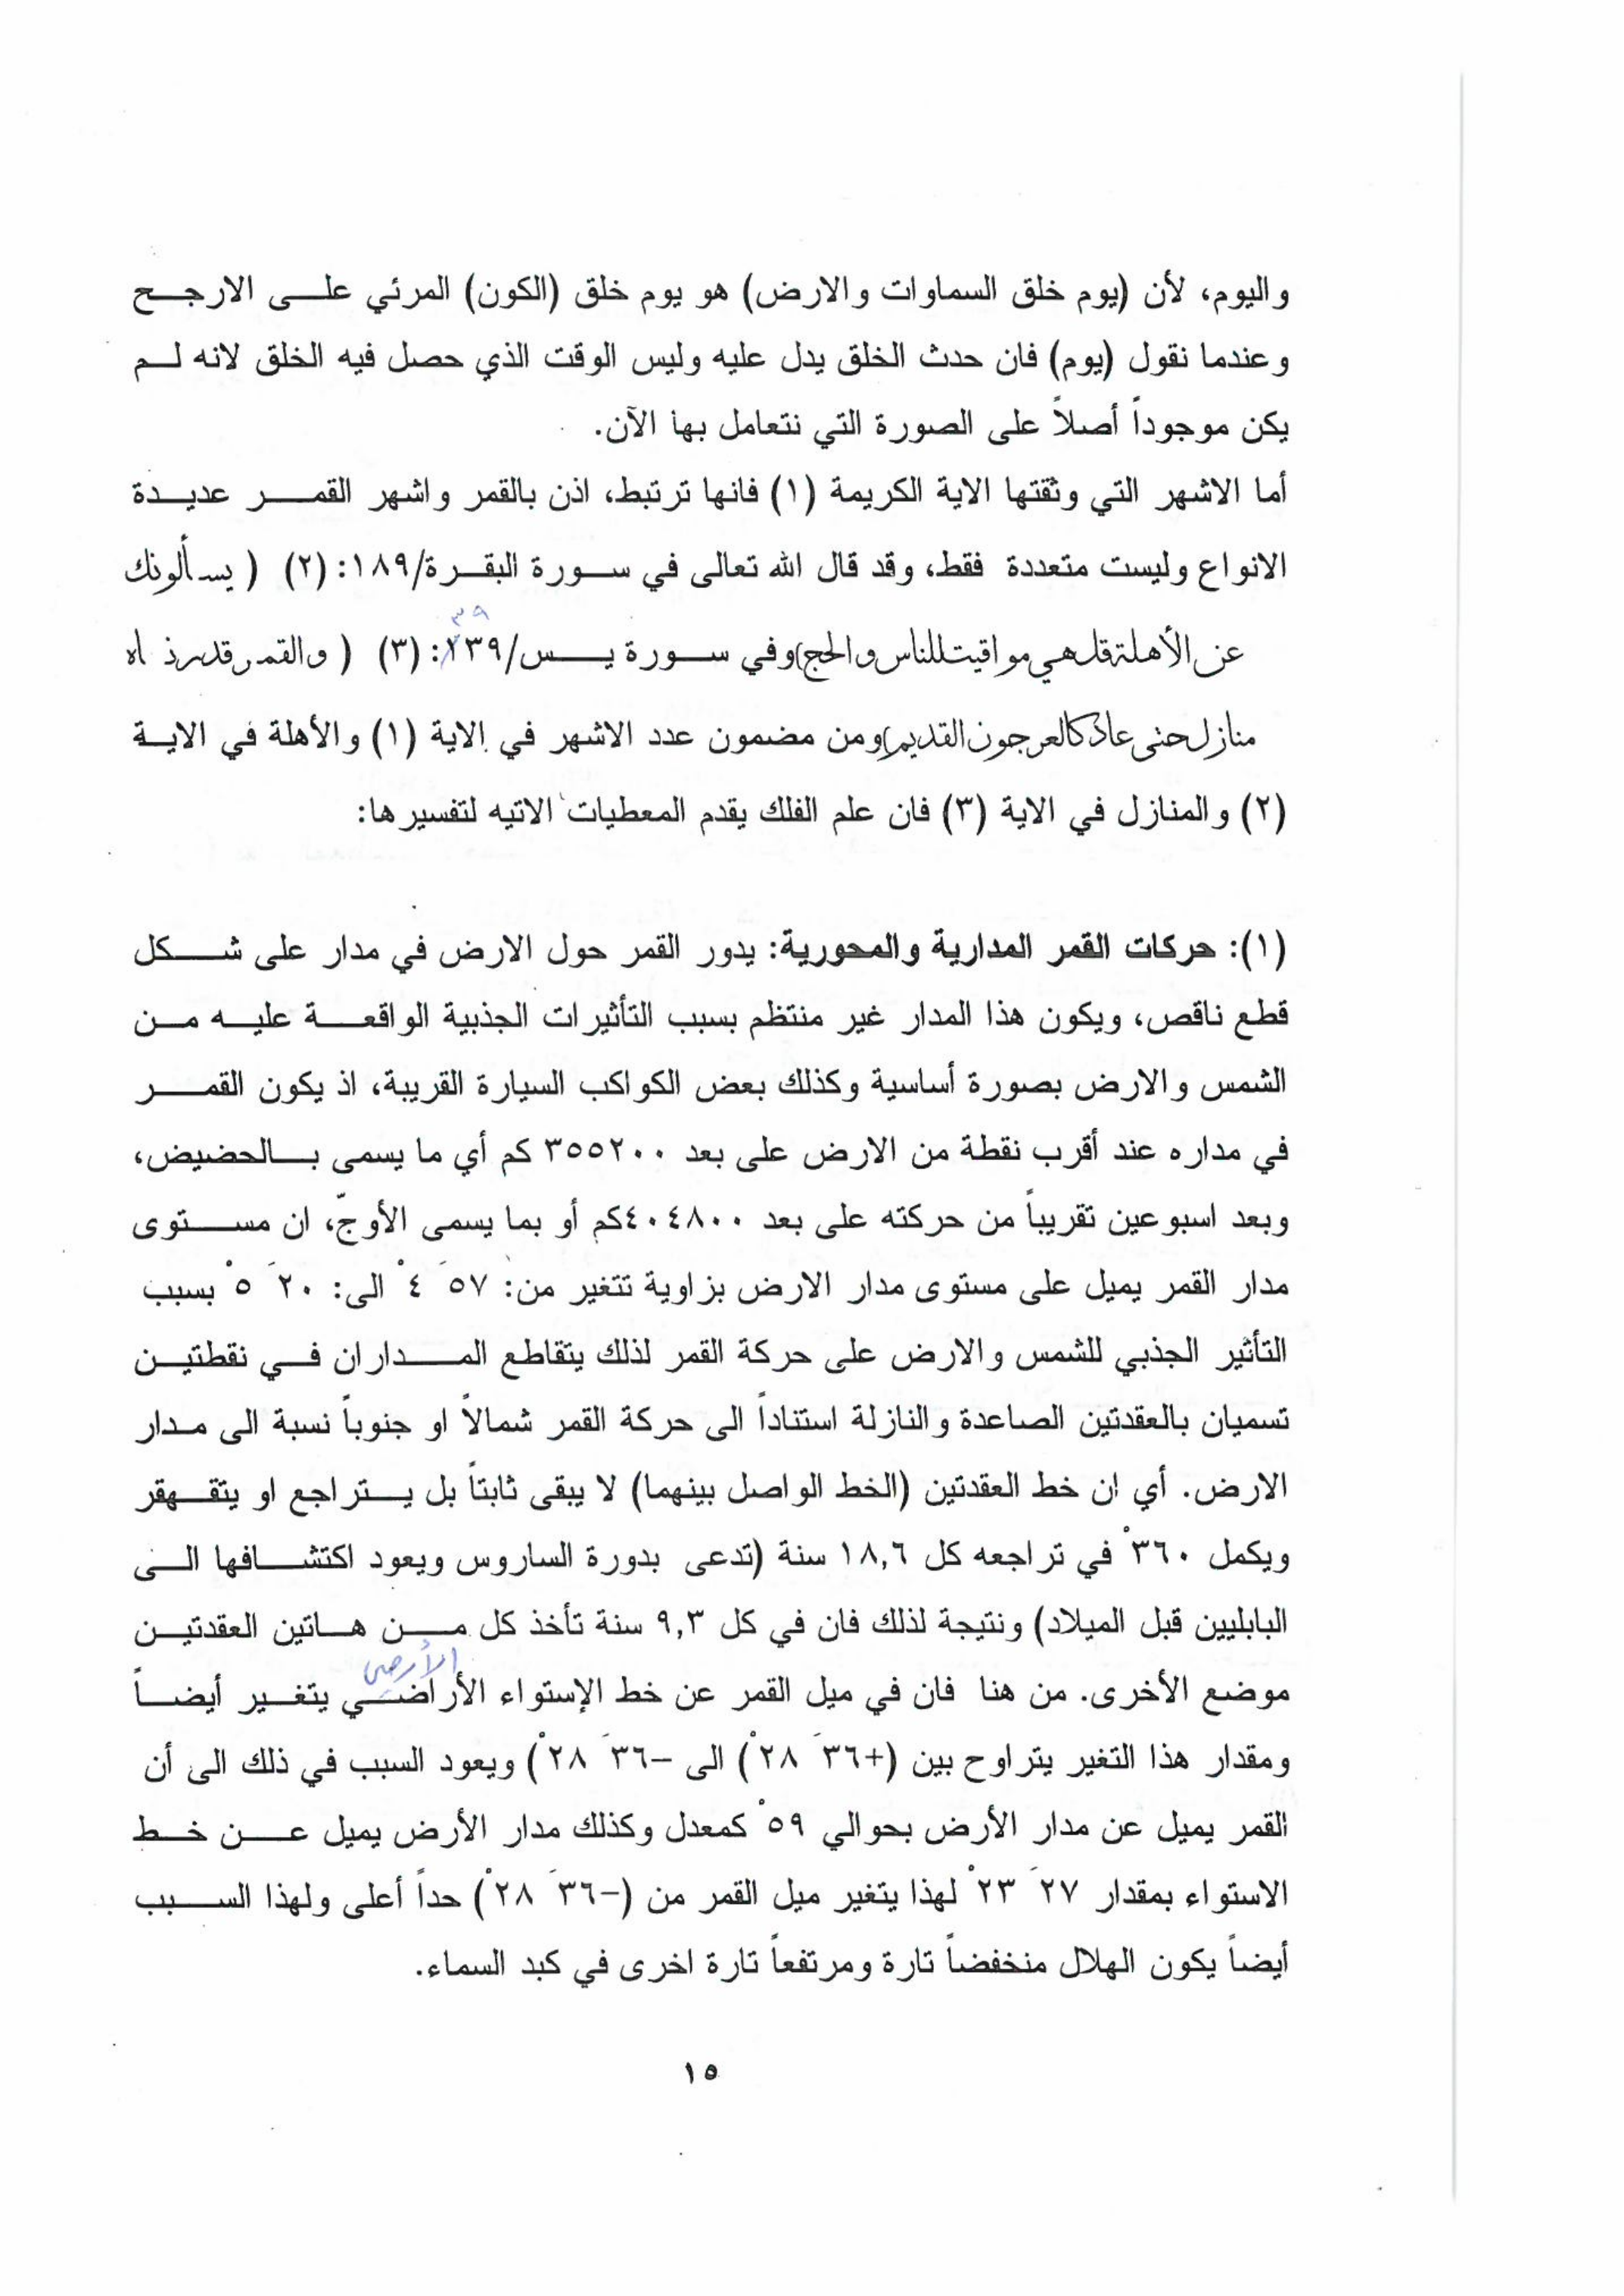 واليوم، لأن (يوم خلق السماوات والارض) هو يوم خلق (الكون) المرئي على الارجح
وعندما نقول (يوم) فان حدث الخلق يدل عليه وليس الوقت الذي حصل فيه الخلق لانه لم
يكن موجوداً أصلاً على الصورة التي نتعامل بها الآن.
أما الاشهر التي وثقتها الاية الكريمة (١) فانها ترتبط، اذن بالقمر واشهر القمر عديدة
الانواع وليست متعددة فقط، وقد قال الله تعالى في سورة البقرة/١٨٩: (٢) ( يسألونك
٣٩
عن الأهلة قل هي مواقيت للناس والحج) وفي سورة يس/١٣٩: (٣) ( والقمر قدرناه
منازل حتى عاد كالعرجون القديم) ومن مضمون عدد الاشهر في الاية (١) والأهلة في الاية
(٢) والمنازل في الاية (٣) فان علم الفلك يقدم المعطيات الاتيه لتفسيرها:
(١): حركات القمر المدارية والمحورية: يدور القمر حول الارض في مدار على شكل
قطع ناقص، ويكون هذا المدار غير منتظم بسبب التأثيرات الجذبية الواقعة عليه من
الشمس والارض بصورة أساسية وكذلك بعض الكواكب السيارة القريبة، اذ يكون القمر
في مداره عند أقرب نقطة من الارض على بعد ٣٥٥٢٠٠ كم أي ما يسمى بالحضيض،
وبعد اسبوعين تقريباً من حركته على بعد ٤٠٤٨٠٠كم أو بما يسمى الأوجّ، ان مستوى
مدار القمر يميل على مستوى مدار الارض بزاوية تتغير من: ٥٧َ ٤ْ الى: ٢٠َ ٥ْ بسبب
التأثير الجذبي للشمس والارض على حركة القمر لذلك يتقاطع المداران في نقطتين
تسميان بالعقدتين الصاعدة والنازلة استناداً الى حركة القمر شمالاً او جنوباً نسبة الى مدار
الارض. أي ان خط العقدتين (الخط الواصل بينهما) لا يبقى ثابتاً بل يتراجع او يتقهقر
ويكمل ٣٦٠ْ في تراجعه كل ١٨,٦ سنة (تدعى بدورة الساروس ويعود اكتشافها الى
البابليين قبل الميلاد) ونتيجة لذلك فان في كل ٩,٣ سنة تأخذ كل من هاتين العقدتين
الأرضي
موضع الأخرى. من هنا فان في ميل القمر عن خط الإستواء الأراضي يتغير أيضاً
ومقدار هذا التغير يتراوح بين (+٣٦َ ٢٨ْ) الى –٣٦َ ٢٨ْ) ويعود السبب في ذلك الى أن
القمر يميل عن مدار الأرض بحوالي ٥٩ْ كمعدل وكذلك مدار الأرض يميل عن خط
الاستواء بمقدار ٢٧َ ٢٣ْ لهذا يتغير ميل القمر من (–٣٦َ ٢٨ْ) حداً أعلى ولهذا السبب
أيضاً يكون الهلال منخفضاً تارة ومرتفعاً تارة اخرى في كبد السماء.
١٥